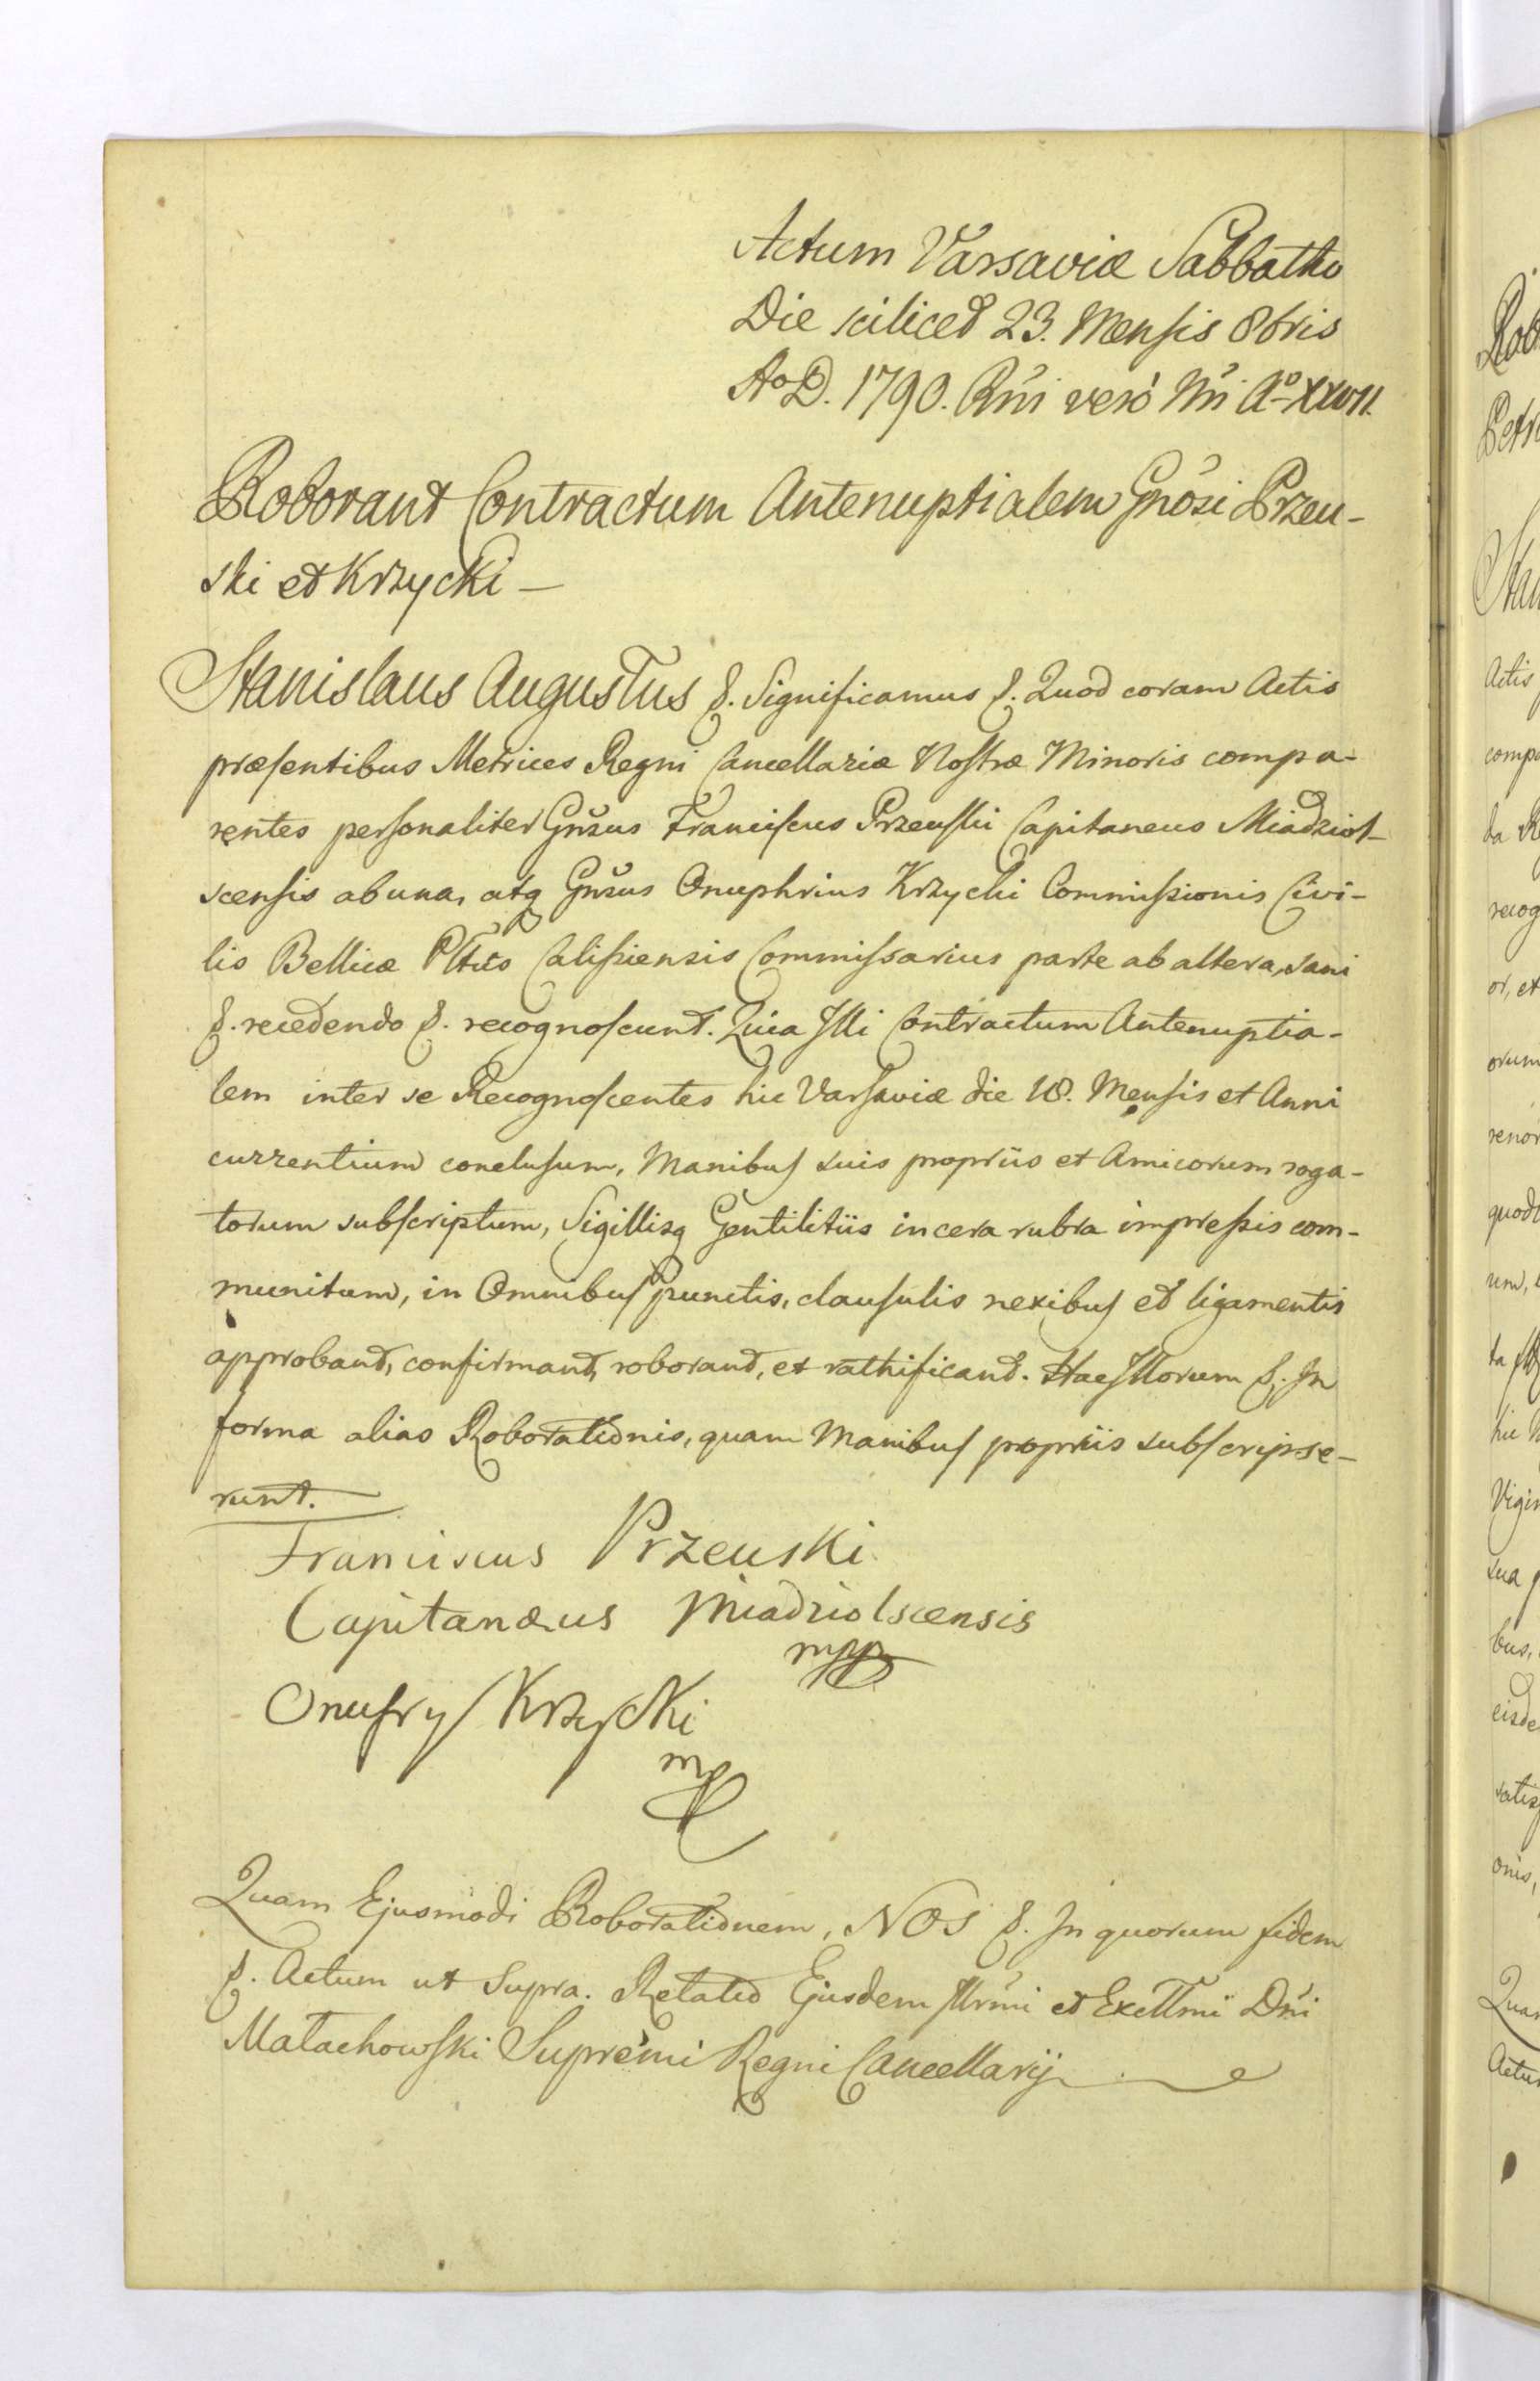 Actum Varsaviæ Sabbatho
Die scilicet 23. Mensis 8bris
Ao D. 1790. Rñi verò Ñri Aº XXVII.
Roborant Contractum Antenuptialem Gnõsi Przeu-
ski et Krzycki —
Stanislaus Augustus &. Significamus &. Quod coram Actis
præsentibus Metrices Regni Cancellariæ Nostræ Minoris compa-
rentes personaliter Gnšus Franciscus Przeuski Capitaneus Miadziol-
scensis ab una, atq Gnšus Onuphrius Krzycki Commissionis Civi-
lis Bellicæ Plttũs Calisiensis Commissarius parte ab altera, sani
&. recedendo &. recognoscunt. Quia Illi Contractum Antenuptia-
lem inter se Recognoscentes hic Varsaviæ die 18. Mensis et Anni
currentium conclusum, Manibus suis propriis et Amicorum roga-
torum subscriptum, Sigillisq Gentilitiis in cera rubra impressis com-
munitum, in Omnibus Punctis, clausulis nexibus et ligamentis
approbant, confirmant, roborant, et rathificant. Hac Illorum &. In
forma alias Roborationis, quam Manibus propriis subscripse-
runt.
Franciscus Przeuski
Capitanæus Miadziolscensis
mpp
Onufry Krzycki
mp
Quam Ejusmodi Roborationem, NOS &. In quorum fidem
&. Actum ut Supra. Relatio Ejusdem Illrmi et Excllmi Dñi
Małachowski Supremi Regni Cancellarij